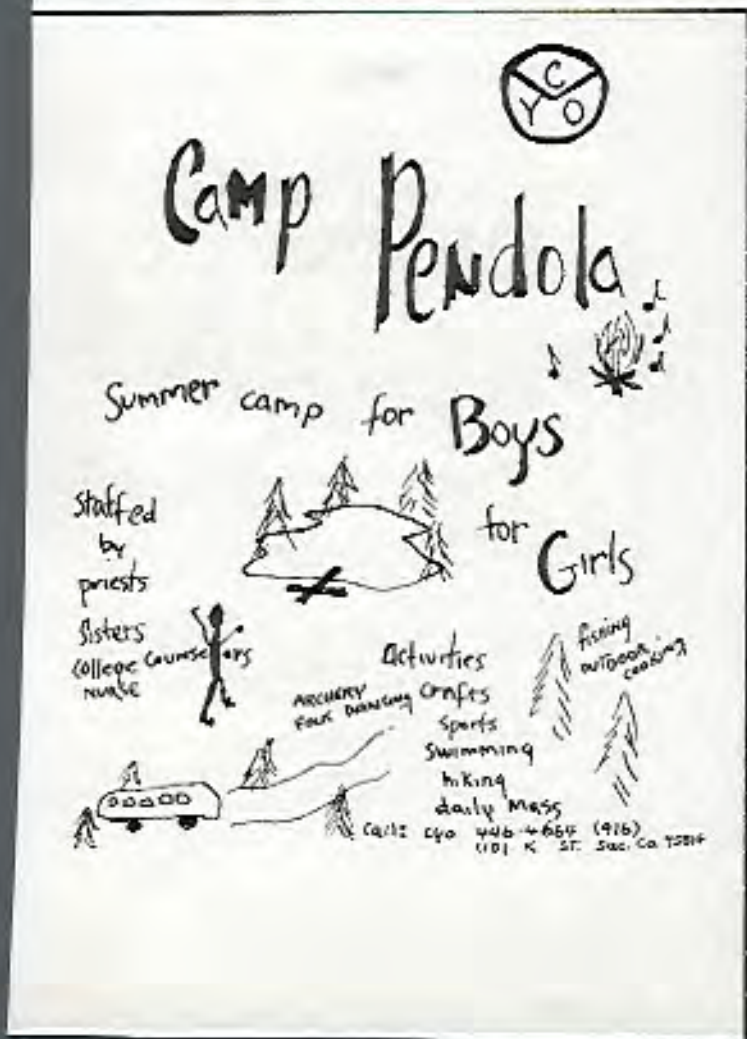 C
Y O
Camp Pendola
Summer camp for Boys
for Girls
Staffed
by
priests
Sisters
College Counselors
Nurse
Activities
ARCHERY
FOLK DANCING
Crafts
Sports
Swimming
hiking
daily Mass
fishing
OUTDOOR
COOKING
Call: cyo 446-4664 (916)
1101 K ST. Sac. Ca. 95814